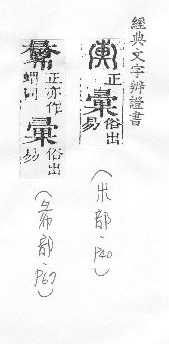 經典文字辨證書
正
彙 俗出易
正亦作蝟同
彙 俗出
部.P40)
部.P67)